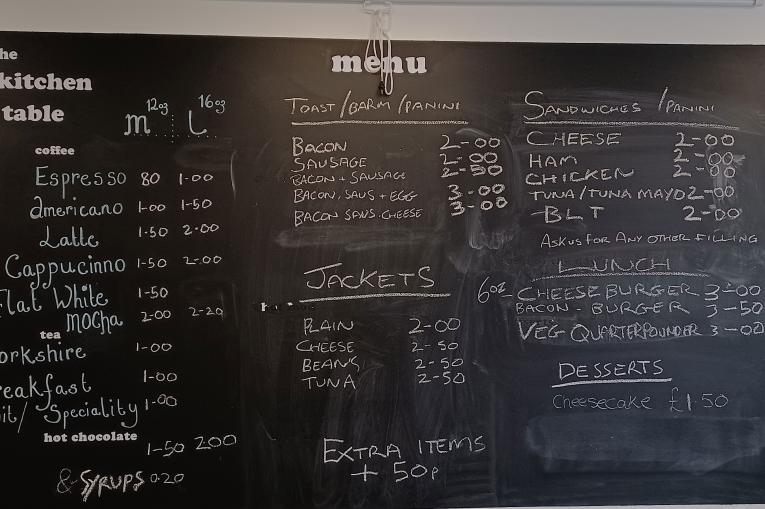 he
kitchen
table
12oz 16oz
m L
coffee
Espresso 80 1-00
americano 1-00 1-50
Latte 1-50 2-00
Cappucinno 1-50 2-00
Flat White 1-50
mocha 2-00 2-20
tea
orkshire 1-00
reakfast 1-00
it/ Speciality 1-00
hot chocolate
1-50 200
& SYRUPS 0.20
menu
TOAST/BARM/PANINI
BACON 2-00
SAUSAGE 2-00
BACON + SAUSAGE 2-50
BACON, SAUS + EGG 3-00
BACON SAUS-CHEESE 3-00
JACKETS
PLAIN 2-00
CHEESE 2-50
BEANS 2-50
TUNA 2-50
EXTRA ITEMS
+ 50p
SANDWICHES /PANINI
CHEESE 2-00
HAM 2-00
CHICKEN 2-00
TUNA/TUNA MAYO 2-00
BLT 2-00
ASK US FOR ANY OTHER FILLING
LUNCH
6oz CHEESE BURGER 3-00
BACON - BURGER 3-50
VEG QUARTERPOUNDER 3-00
DESSERTS
Cheesecake £1-50